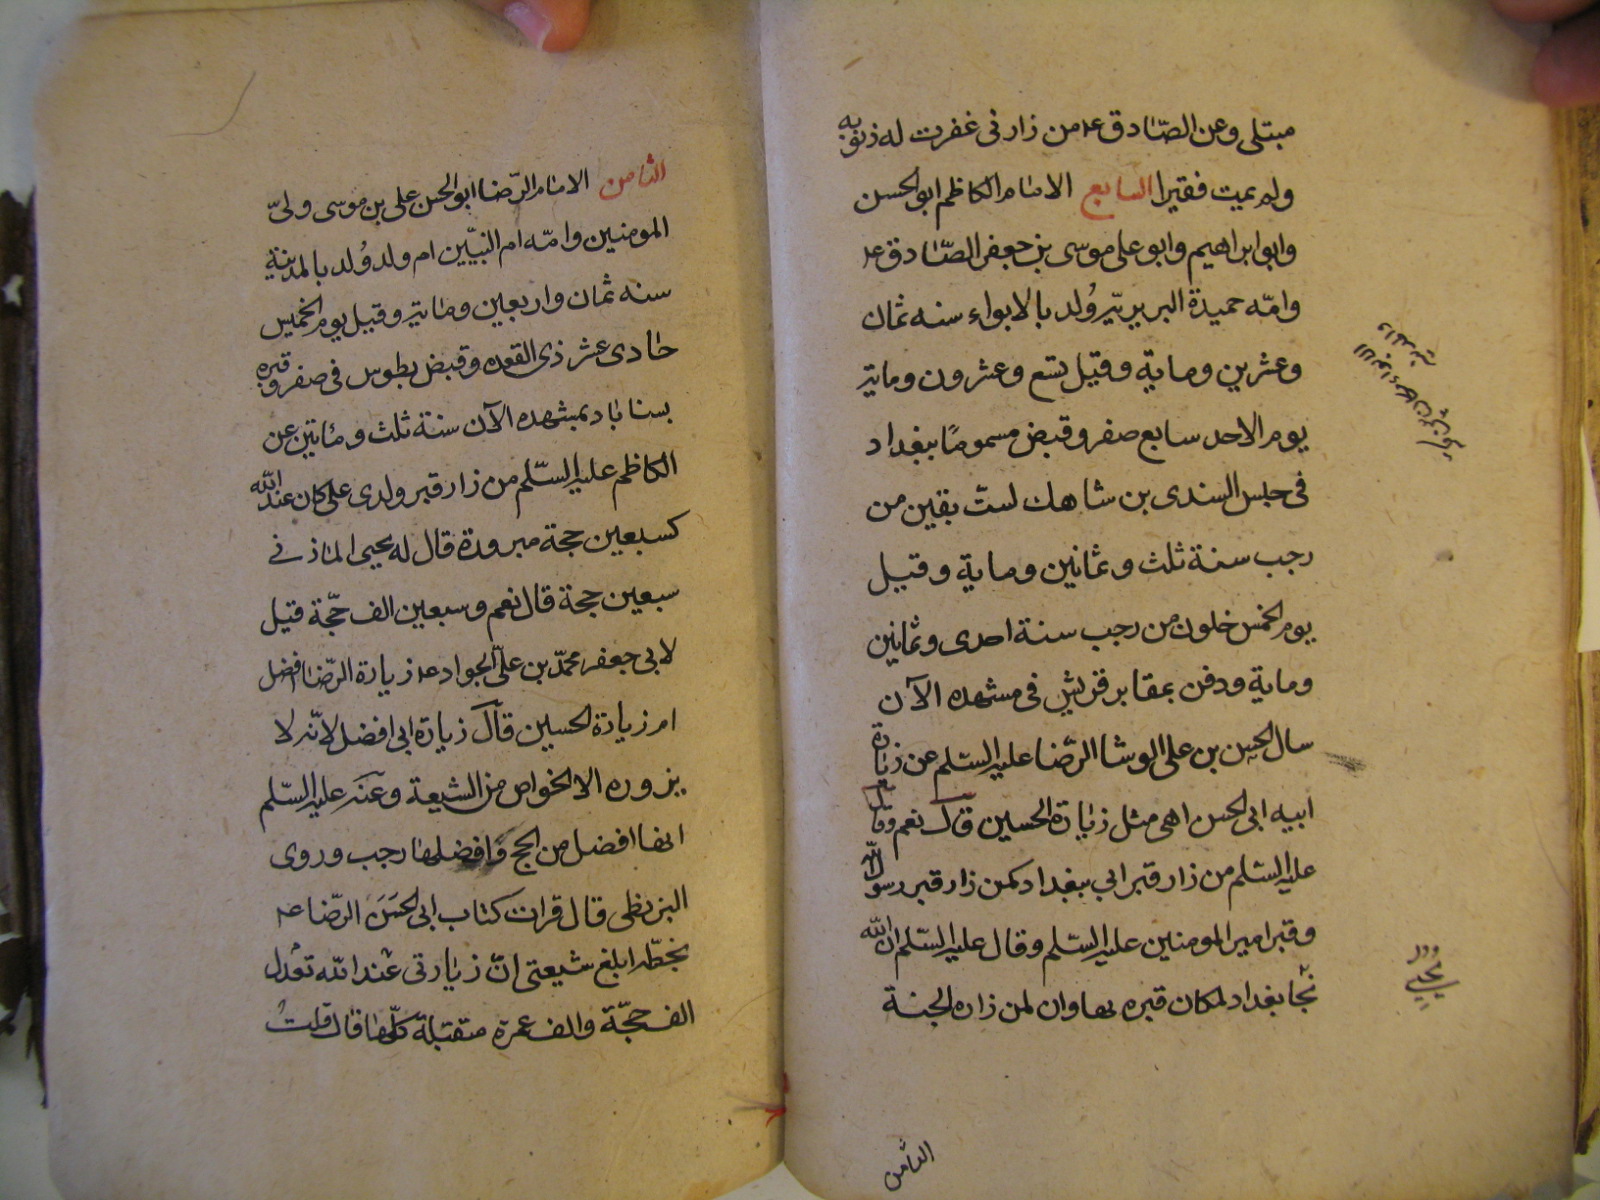 مبتلى وعن الصّادق عه من زارنى غفرت له ذنوبه
ولم يمت فقيرا السابع الامام الكاظم ابو الحسن
وابو ابراهيم وابو على موسى بن جعفر الصّادق عه
وامّه حميدة البربريّه وُلد بالابواء سنه ثمان
وعشرين وماية وقيل تسع وعشرون وماية
يوم الاحد سابع صفر وقبض مسمومًا ببغداد
فى حبس السندى بن شاهك لستّ بقين من
رجب سنة ثلث وثمانين وماية وقيل
يوم الخمس خلون من رجب سنة احدى وثمانين
وماية ودفن بمقابر قريش فى مشهده الآن
سال الحسن بن على الوشا الرّضا عليه السّلم عن زيارة
ابيه ابى الحسن اهى مثل زيارة الحسين قال نعم وقال
عليه السّلم من زار قبر ابي ببغداد كمن زار قبر رسول الله
وقبر امير المومنين عليه السّلم وقال عليه السّلم ان الله
نجّا بغداد لمكان قبره بها وان لمن زاره الجنة
الثامن
الثامن الامام الرّضا ابو الحسن على بن موسى ولىّ
المومنين وامّه ام النبيّين ام ولد وُلد بالمدينة
سنه ثمان واربعين ومايه وقيل يوم الخميس
حادى عشر ذى القعده وقبض بطوس فى صفر وقبره
بسناباد بمشهده الآن سنة ثلث ومئاتين عن
الكاظم عليه السّلم من زار قبر ولدى على كان عند الله
كسبعين حجة مبرورة قال له يحيى المازنى
سبعين حجة قال نعم وسبعين الف حجّة قيل
لابى جعفر محمّد بن علىّ الجواد عه زيارة الرّضا افضل
ام زيارة الحسين قال زيارة ابى افضل لانّه لا
يزوره الا الخواص من الشيعة وعنه عليه السّلم
انها افضل من الحج وافضلها رجب وروى
البزنظى قال قرات كتاب ابى الحسن الرّضا عه
بخطّه ابلغ شيعتى انّ زيارتى عند الله تعدل
الف حجّة والف عمرة متقبلة كلّها قال قلت